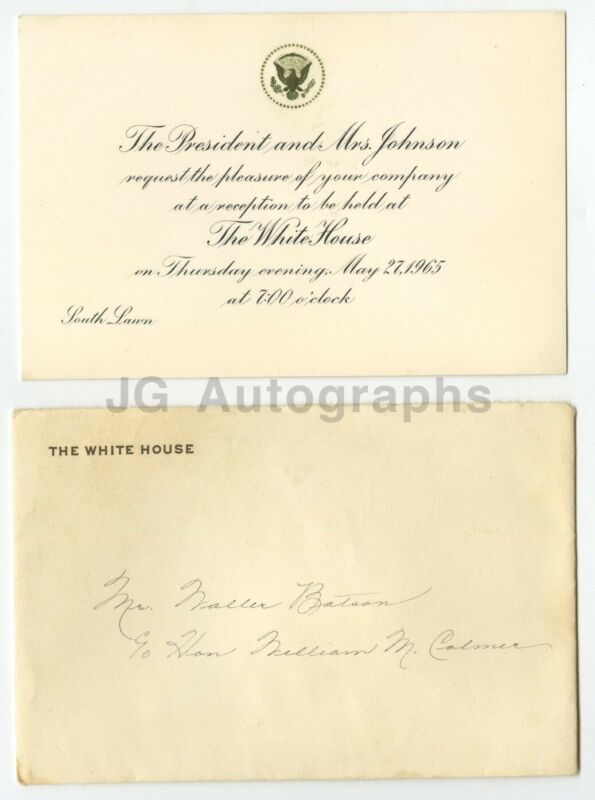 The President and Mrs. Johnson
request the pleasure of your company
at a reception to be held at
The White House
on Thursday evening, May 27, 1965
at 7:00 o'clock
South Lawn
JG Autographs
THE WHITE HOUSE
Mr. Walter Batson
c/o Hon. William M. Colmer